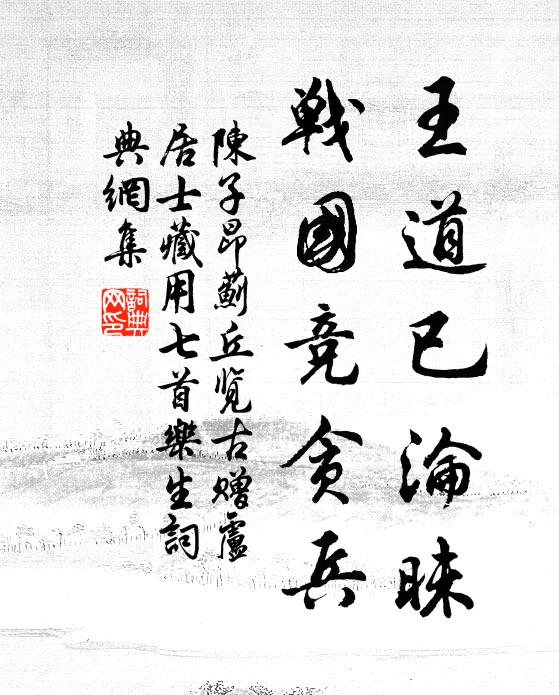 王道已淪昧
戰國竞貪兵
陳子昂薊丘覽古贈盧
居士藏用七首樂生詞
典網集
詞典
网印